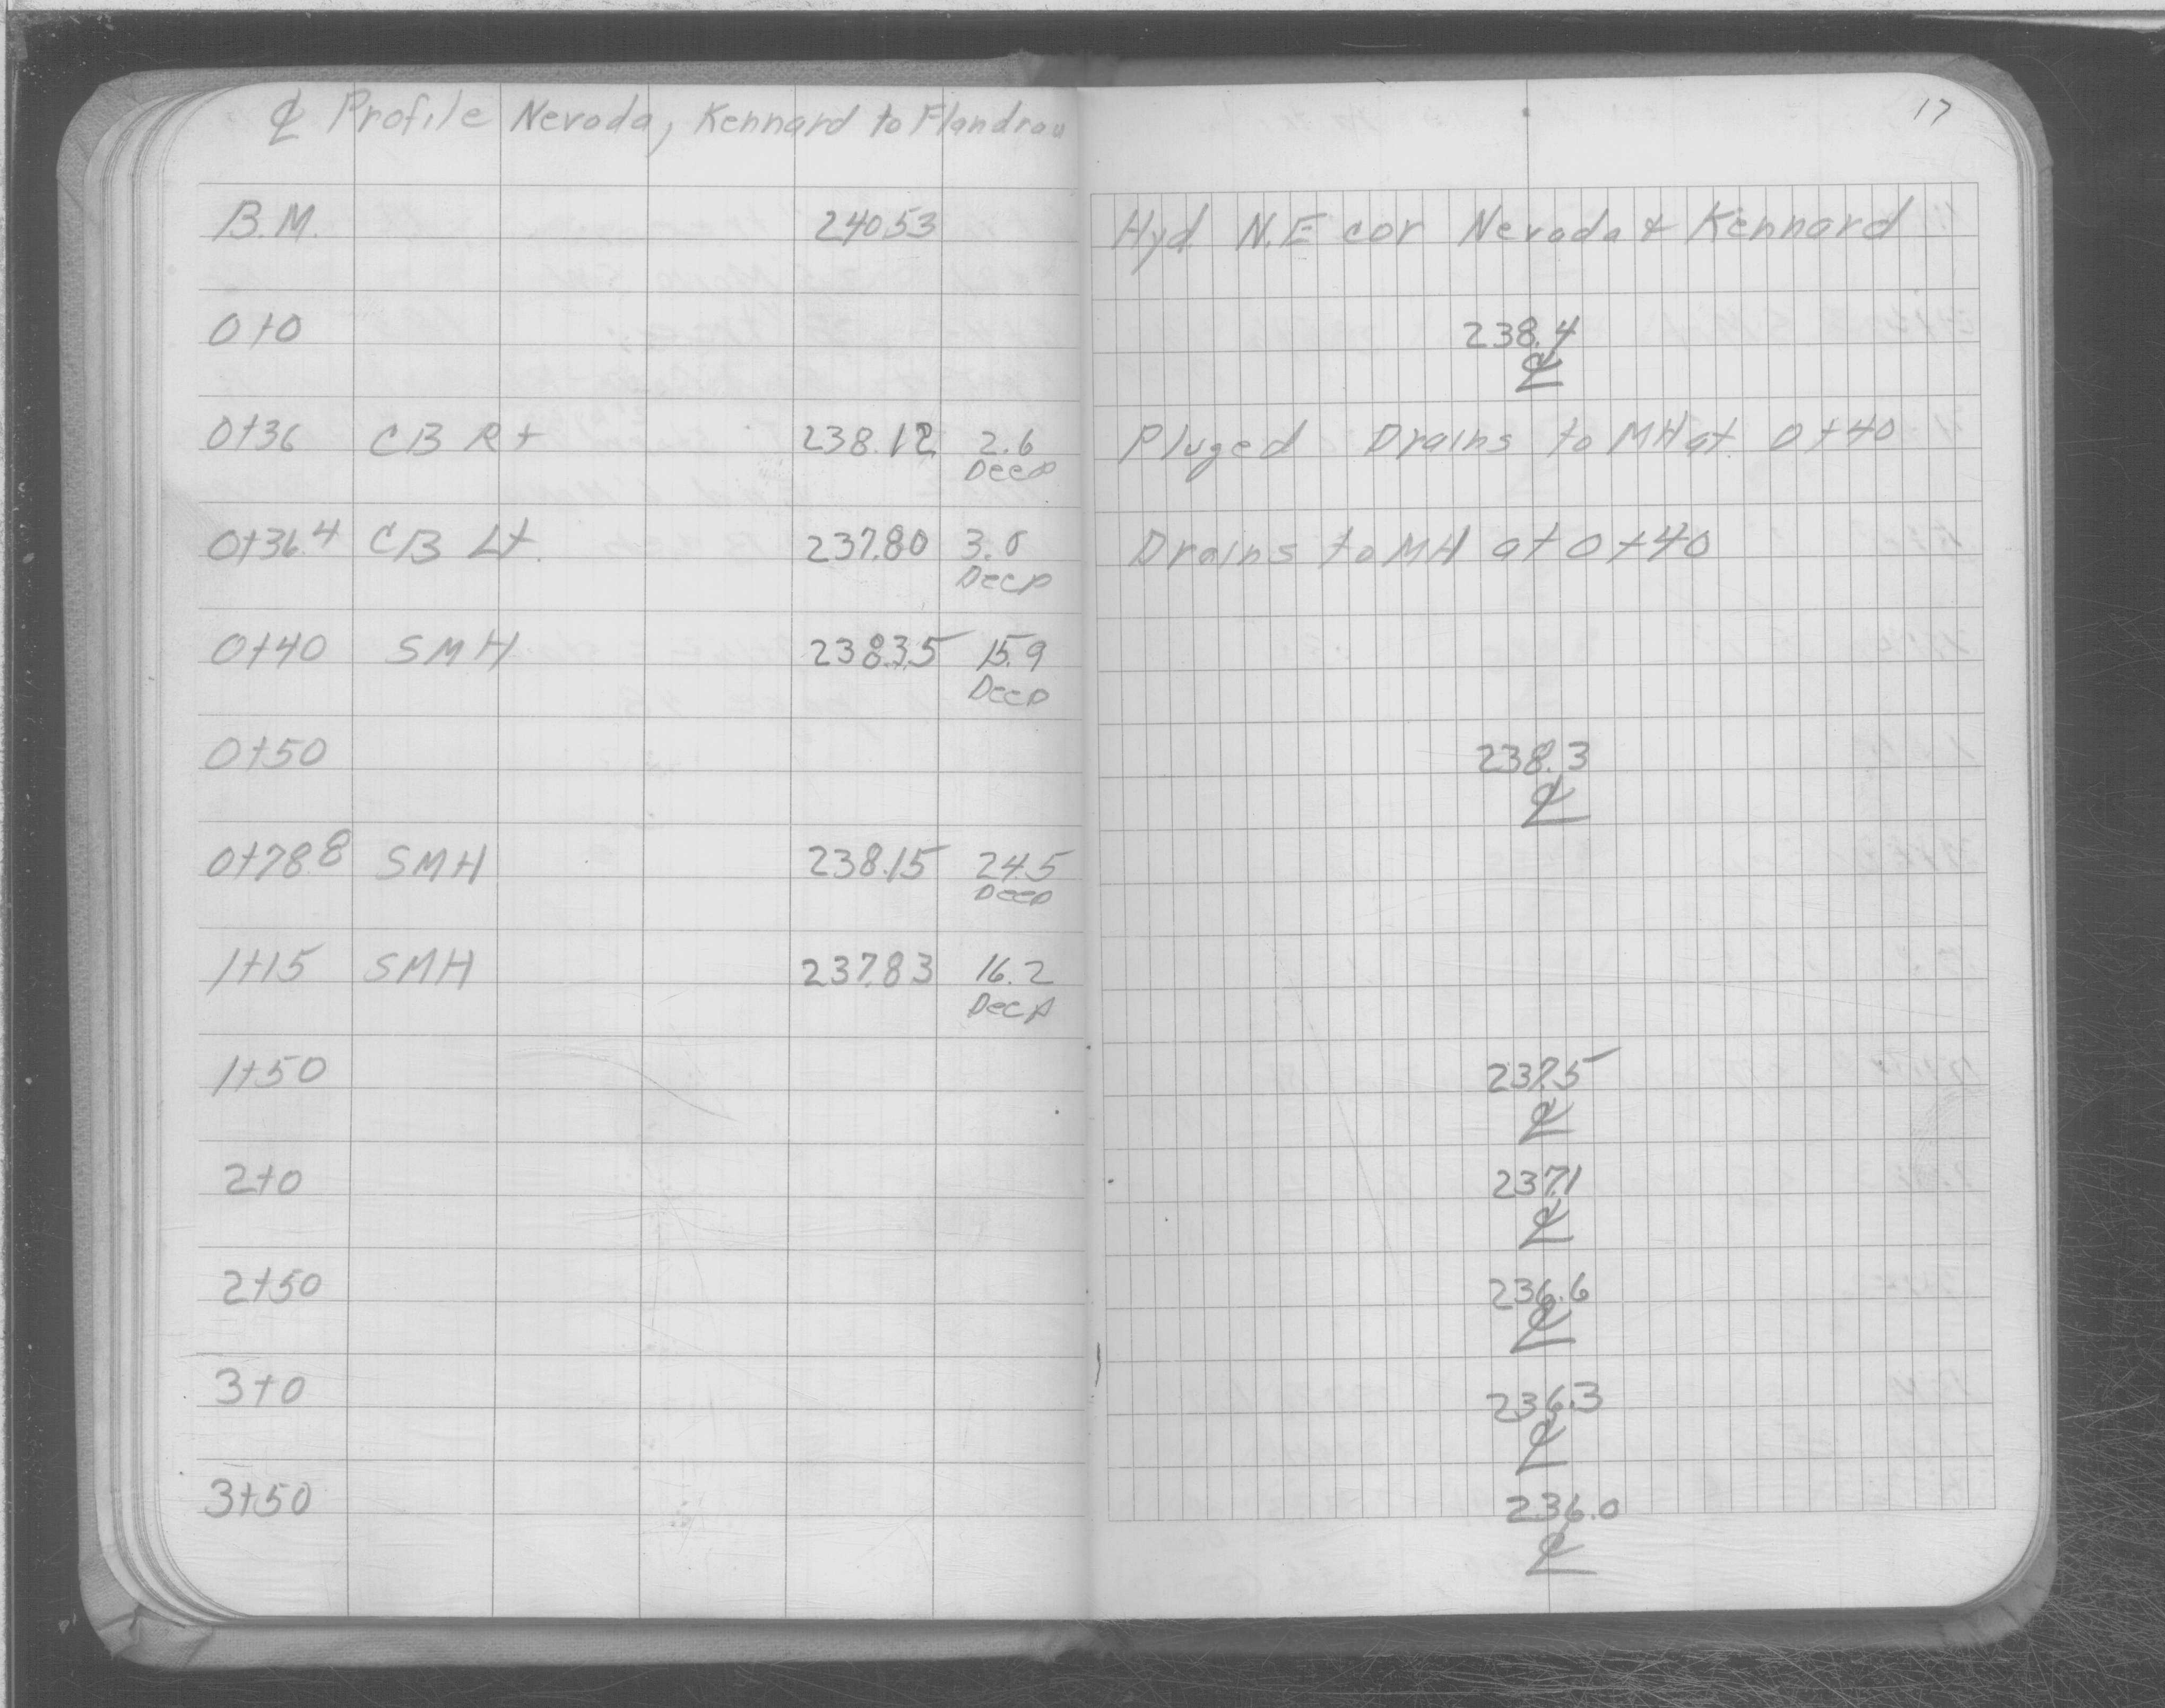 ℄ Profile Nevada, Kennard to Flandrau
17
B.M. 240.53 Hyd. N.E cor Nevada & Kennard
0+0 238.4
℄
0+36 CB Rt 238.12 2.6 Pluged Drains to MH at 0+40
Deep
0+36.4 CB Lt. 237.80 Drains to MH at 0+40
Deep
0+40 SMH 238.35 15.9
Deep
0+50 238.3
℄
0+78.8 SMH 238.15 24.5
Deep
1+15 SMH 237.83 16.2
Deep
1+50 237.5
℄
2+0 237.1
℄
2+50 236.6
℄
3+0 236.3
℄
3+50 236.0
℄